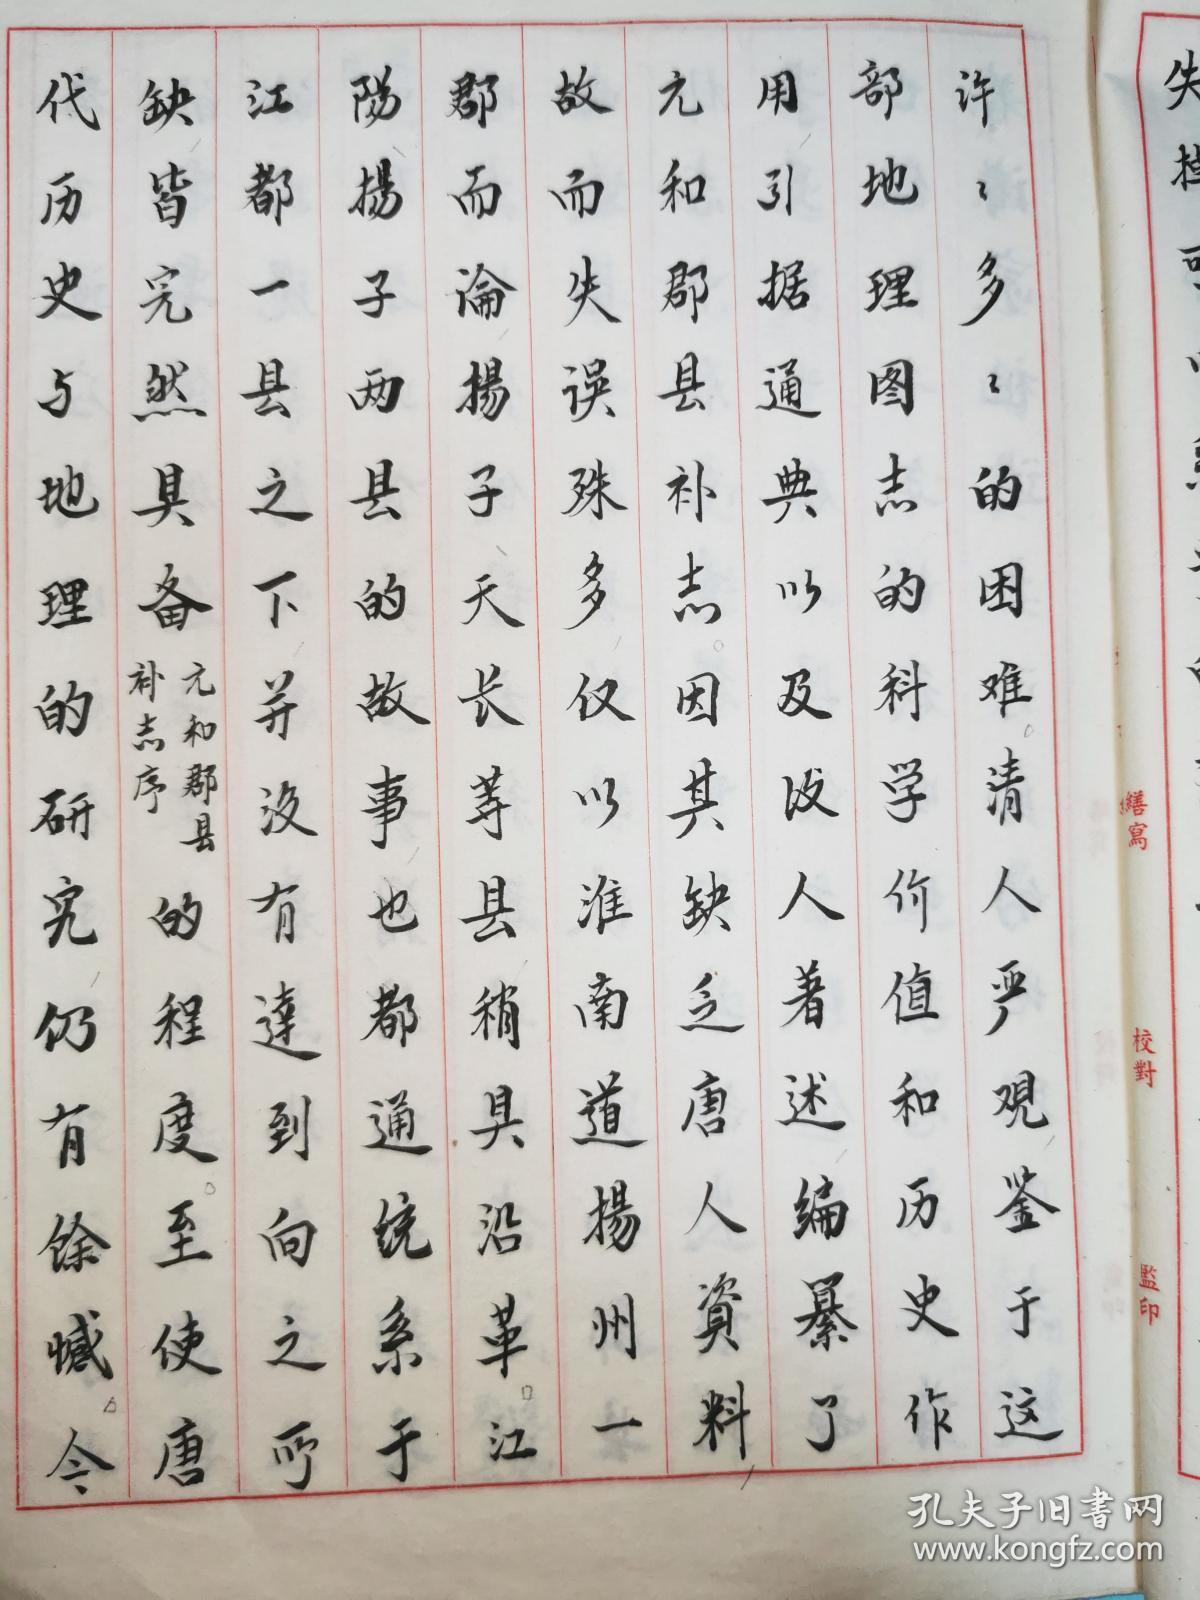 许〻多〻的困难清人严观鉴于这
部地理图志的科学价值和历史作
用引据通典以及後人著述编纂了
元和郡县补志因其缺乏唐人資料
故而失误殊多仅以淮南道揚州一
郡而論揚子天长等县稍具沿革江
陽揚子两县的故事也都通统系于
江都一县之下并没有達到向之所
缺皆完然具备元和郡县补志序的程度至使唐
代历史与地理的研究仍有馀憾今
繕寫
校對
監印
孔夫子旧书网
www.kongfz.com